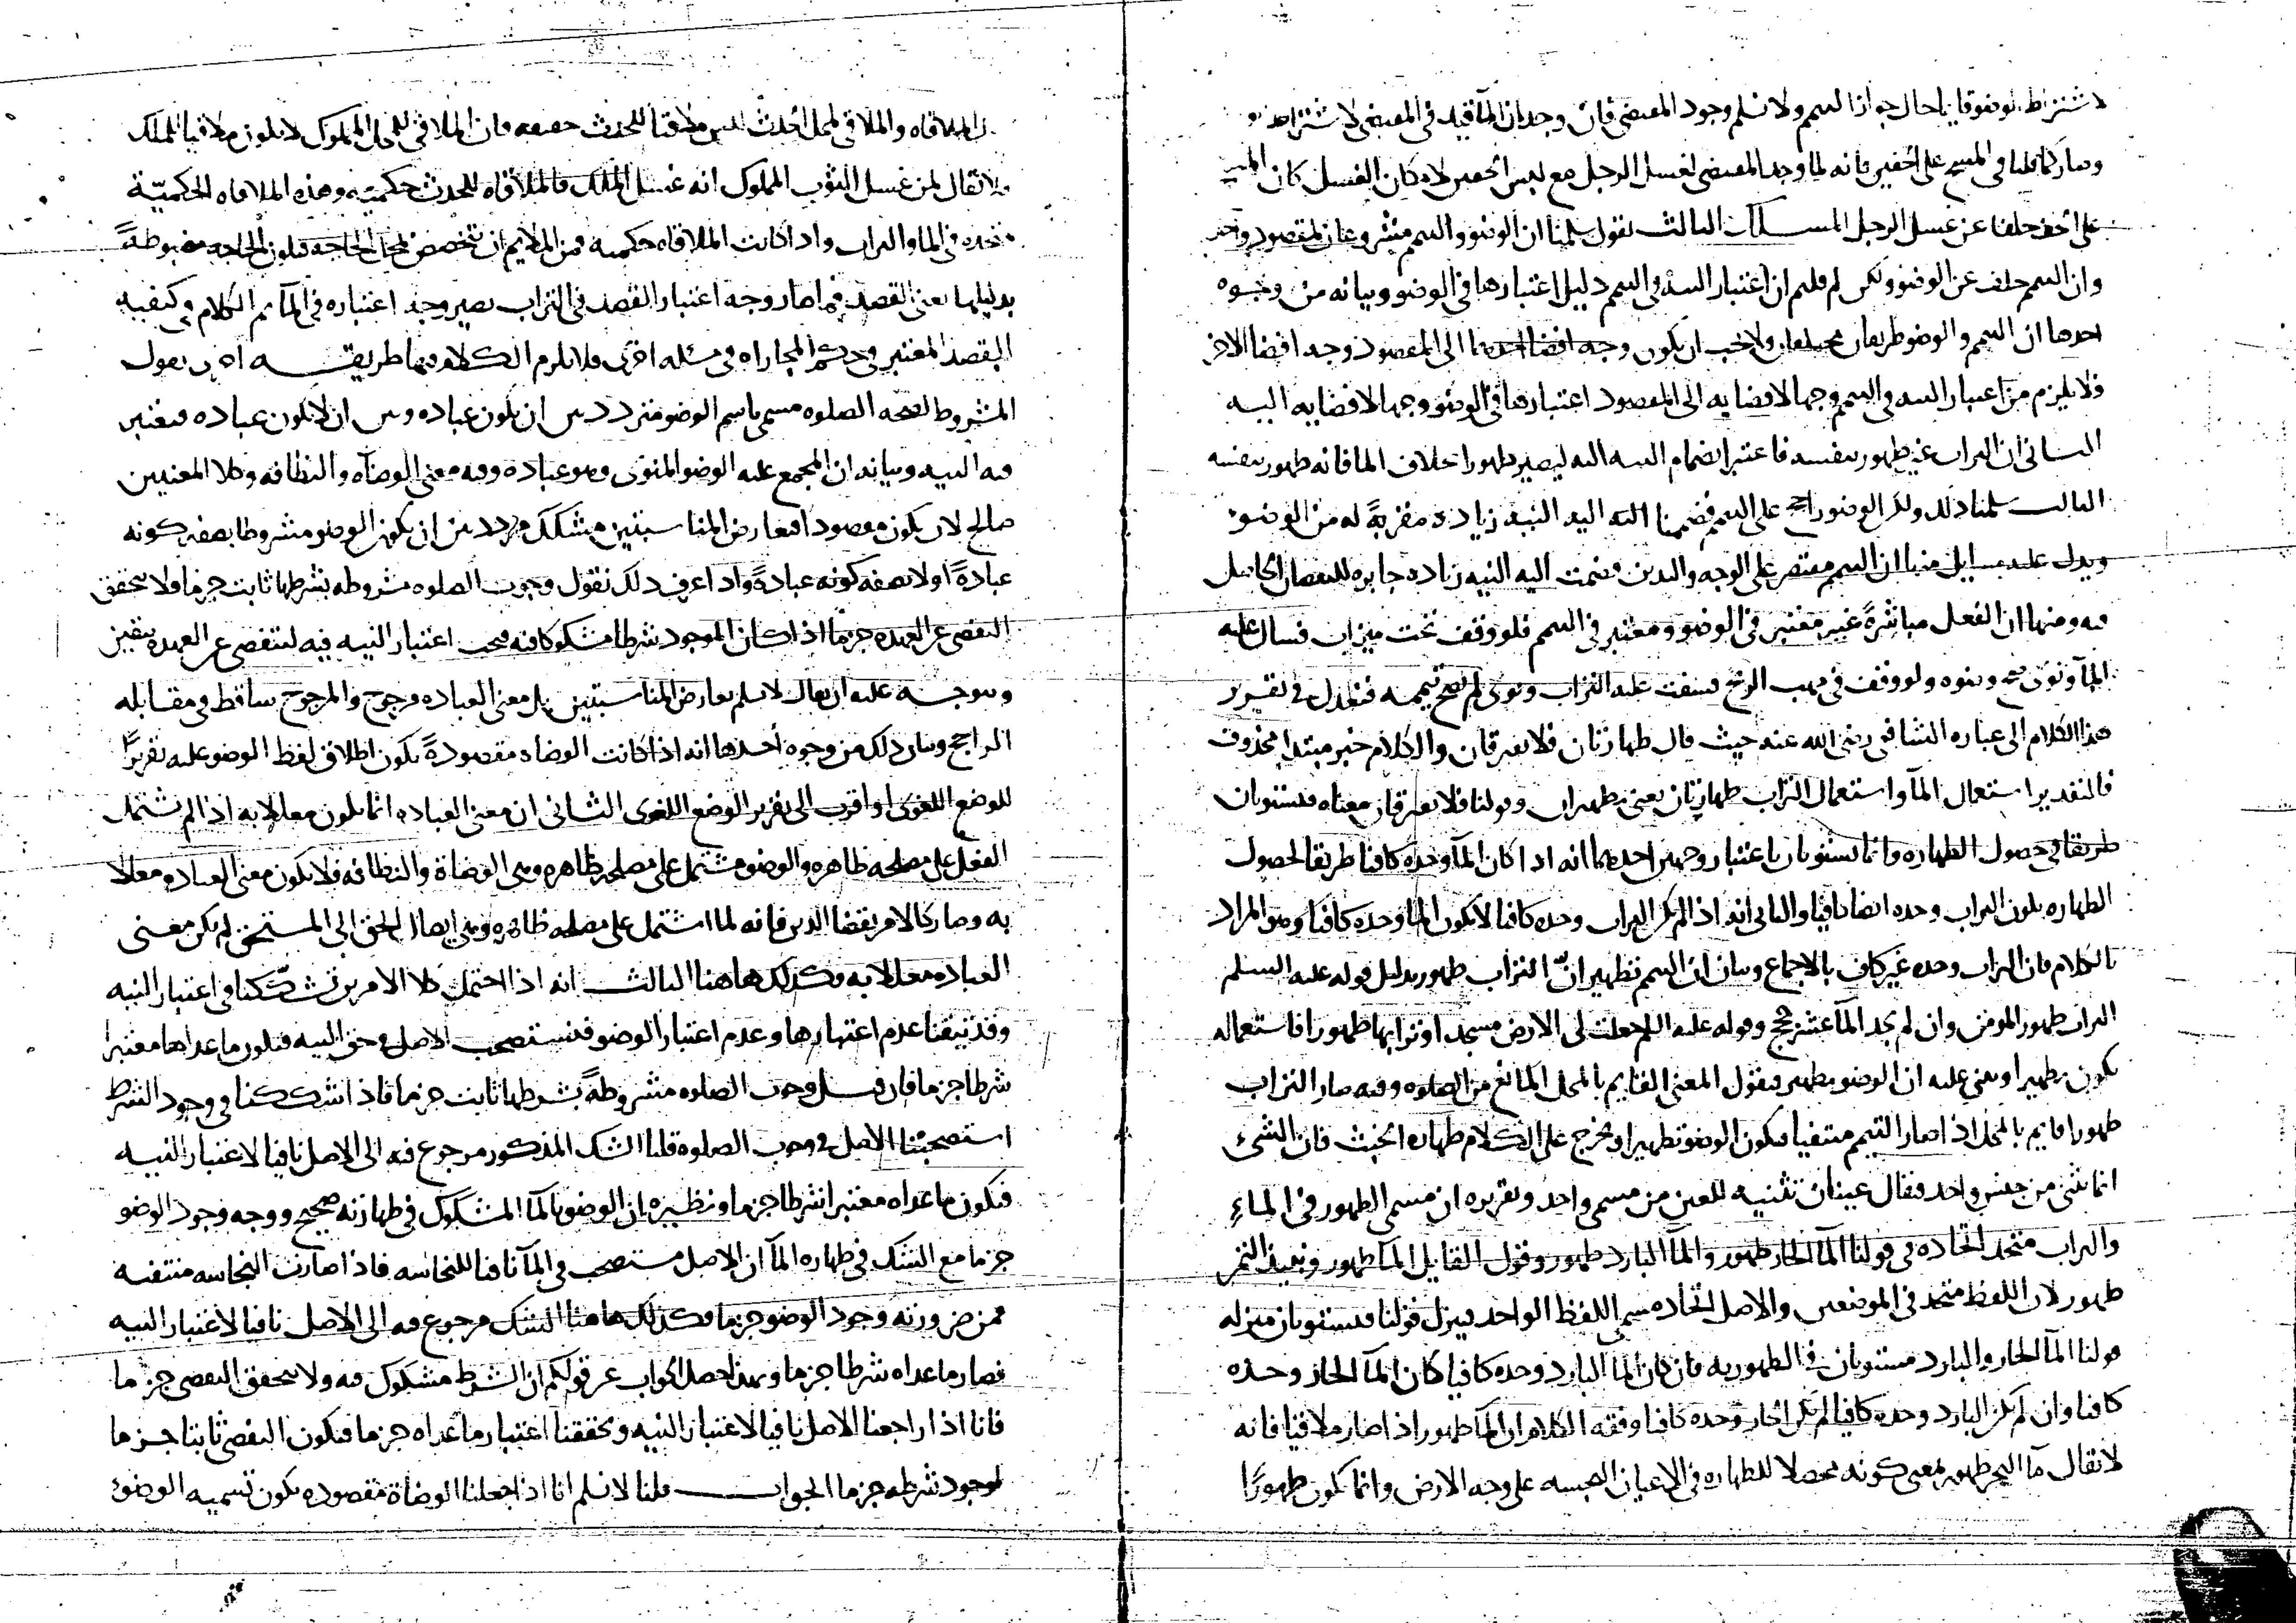 لاشتراط الوضوء قايما حال جواز التيمم ولا نسلم وجود المقتضى فان وجدان الماء قيد في المقتضى لاشتراطه
وصار كما قلنا في المسح على الخفين فانه لما وجد المقتضى لغسل الرجل مع لبس الخفين لامكان الغسل كان المسح
على الخف خلفا عن غسل الرجل المسلك الثالث نقول سلمنا ان الوضو والتيمم مشروعان لمقصود واحد
وان التيمم خلف عن الوضو ولكن لم قلتم ان اعتبار النية في التيمم دليل اعتبارها في الوضو وبيانه من وجوه
احدها ان التيمم والوضو طريقان مختلفان ولا يجب ان يكون وجه افضا احدهما الى المقصود وجه افضا الاخر
فلا يلزم من اعتبار النية في التيمم وجها لافضايه الى المقصود اعتبارها في الوضو وجها لافضايه اليه
الثاني ان التراب غير طهور بنفسه فاعتبر انضمام النية اليه ليصير طهورا خلاف الما فانه طهور بنفسه
الثالث سلمنا ذلك ولكن الوضو راجح على التيمم فضممنا اليه النية زيادة مقربة له من الوضوء
ويدل عليه مسايل منها ان التيمم مقتصر على الوجه واليدين فضمت اليه النية زيادة جابرة للنقصان الحاصل
فيه ومنها ان الفعل مباشرة غير معتبر في الوضو ومعتبر في التيمم فلو وقف تحت ميزاب فسال عليه
الماء ونوى صح وضوه ولو وقف في مهب الريح فسفت عليه التراب ونوى لم يصح تيممه فنعدل في تقرير
هذا الكلام الى عبارة الشافعي رضي الله عنه حيث قال طهارتان فلا يفترقان والكلام خبر مبتدا محذوف
فالتقدير استعمال الماء واستعمال التراب طهارتان يعني تطهيران وقولنا فلا يفترقان معناه فيستويان
طريقا في حصول الطهارة وانما يستويان باعتبار وجهين احدهما انه اذا كان الماء وحده كافيا طريقا لحصول
الطهارة يكون التراب وحده ايضا كافيا والثاني انه اذا لم يكن التراب وحده كافيا لا يكون الما وحده كافيا وهو المراد
بالكلام فان التراب وحده غير كاف بالاجماع وبيان ان التيمم تطهير ان التراب طهور بدليل قوله عليه السلم
التراب طهور المومن وان لم يجد الماء عشر حجج وقوله عليه السلم جعلت لي الارض مسجدا وترابها طهورا فاستعماله
يكون تطهيرا ويعني عليه ان الوضو تطهير فيقول المعنى القايم بالمحل المانع من الصلوه وفيه صار التراب
طهورا قايم بالمحل اذا صار التيمم منتفيا فيكون الوضو تطهيرا ويخرج على الكلام طهارة الخبث فان الشيء
انما يثنى من جنس واحد فيقال عينان تثنية للعين من مسمى واحد وتقريره ان مسمى الطهور في الماء
والتراب متحد اتحاده في قولنا الماء الحار طهور والماء البارد طهور وقول القايل الماء طهور ونبيذ التمر
طهور لان اللفظ متحد في الموضعين والاصل اتحاد مسمى اللفظ الواحد فينزل قولنا فيستويان منزلة
قولنا الماء الحار والبارد مستويان في الطهورية فان كان الماء البارد وحده كافيا كان الماء الحار وحده
كافيا وان لم يكن البارد وحده كافيا لم يكن الحار وحده كافيا وفقه الكلام ان الماء طهور اذا صار ملاقيا فانه
لا يقال ماء البحر طهور بمعنى كونه محصلا للطهارة في الاعيان النجسة على وجه الارض وانما يكون طهورا
بالملاقاه والملاقي لمحل الحدث ليس ملاقيا للحدث حقيقه فان الملاقي للمحل المملوك لا يكون ملاقيا للملك
فلا يقال لمن غسل الثوب المملوك انه غسل الملك فالملاقاه للحدث حكمية وهذه الملاقاه الحكمية
متحده في الما والتراب واذا كانت الملاقاه حكمية فمن الملايم ان تتخصص بمحل الحاجه فتكون الحاجه مضبوطة
بدليلها يعني القصد فيما صار وجه اعتبار القصد في التراب يصير وجه اعتباره في الماء ثم الكلام في كيفية
القصد المعتبر في حكم المجاراه في مسئله اخرى فلا يلزم الكلام فيها طريقه اخرى نقول
المشروط لصحة الصلوه مسمى باسم الوضو متردد بين ان يكون عباده وبين ان لا يكون عباده فيعتبر
فيه النية وبيانه ان المجمع عليه الوضو المنوى وهو عبادة وفيه معنى الوضاه والنظافه وكلا المعنيين
صالح لان يكون مقصودا فتعارض المناسبتين مشكك مردد بين ان يكون الوضو مشروطا بصفة كونه
عبادة او لا بصفه كونه عبادة واذا عرف ذلك نقول وجوب الصلوه مشروطه بشرطها ثابت جزما ولا يتحقق
التفصي عن العهدة جزما اذا كان الموجود شرطا مشكوكا فيه فيجب اعتبار النيه فيه ليتفصى عن العهدة بيقين
ويتوجه عليه ان يقال لا نسلم تعارض المناسبتين بل معنى العباده مرجوح والمرجوح ساقط في مقابلة
الراجح وبيان ذلك من وجوه أحدها انه اذا كانت الوضاه مقصودة يكون اطلاق لفظ الوضو عليه تقريرا
للوضع اللغوي او اقرب الى تقرير الوضع اللغوي الثاني ان معنى العباده انما يكون معللا به اذا لم يشتمل
الفعل على مصلحه ظاهره والوضو مشتمل على مصلحة ظاهره وهي الوضاة والنظافه فلا يكون معنى العباده معللا
به وصار كالامر بقضا الدين فانه لما اشتمل على مصلحه ظاهره وهي ايصال الحق الى المستحق لم يكن معنى
العباده معللا به وكذلك هاهنا الثالث انه اذا احتمل كلا الامرين تشككنا في اعتبار النيه
وقد تيقنا عدم اعتبارها وعدم اعتبار الوضو فنستصحب الاصل في حق النيه فيكون ما عداها معتبرا
شرطا جزما فان قيل وجوب الصلوه مشروطة بشرطها ثابت جزما فاذا شككنا في وجود الشرط
استصحبنا الاصل في وجوب الصلوه قلنا الشك المذكور مرجوع فيه الى الاصل نافيا لاعتبار النيه
فيكون ما عداه معتبرا شرطا جزما ونظيره ان الوضو بالماء المشكوك في طهارته صحيح ووجه وجود الوضو
جزما مع الشك في طهاره الماء ان الاصل مستصحب في الماء نافيا للنجاسه فاذا صارت النجاسه منتفيه
فمن ضرورته وجود الوضو جزما فكذلك هاهنا الشك مرجوع فيه الى الاصل نافيا لاعتبار النيه
فصار ما عداه شرطا جزما وبهذا حصل الجواب عن قولكم ان الشرط مشكوك فيه ولا يتحقق التفصي جزما
فانا اذا راجعنا الاصل نافيا لاعتبار النيه وتحققنا اعتبار ما عداه جزما فيكون التفصي ثابتا جزما
لوجود شرطه جزما الجواب قلنا لا نسلم انا اذا جعلنا الوضاة مقصوده يكون تسميه الوضوء